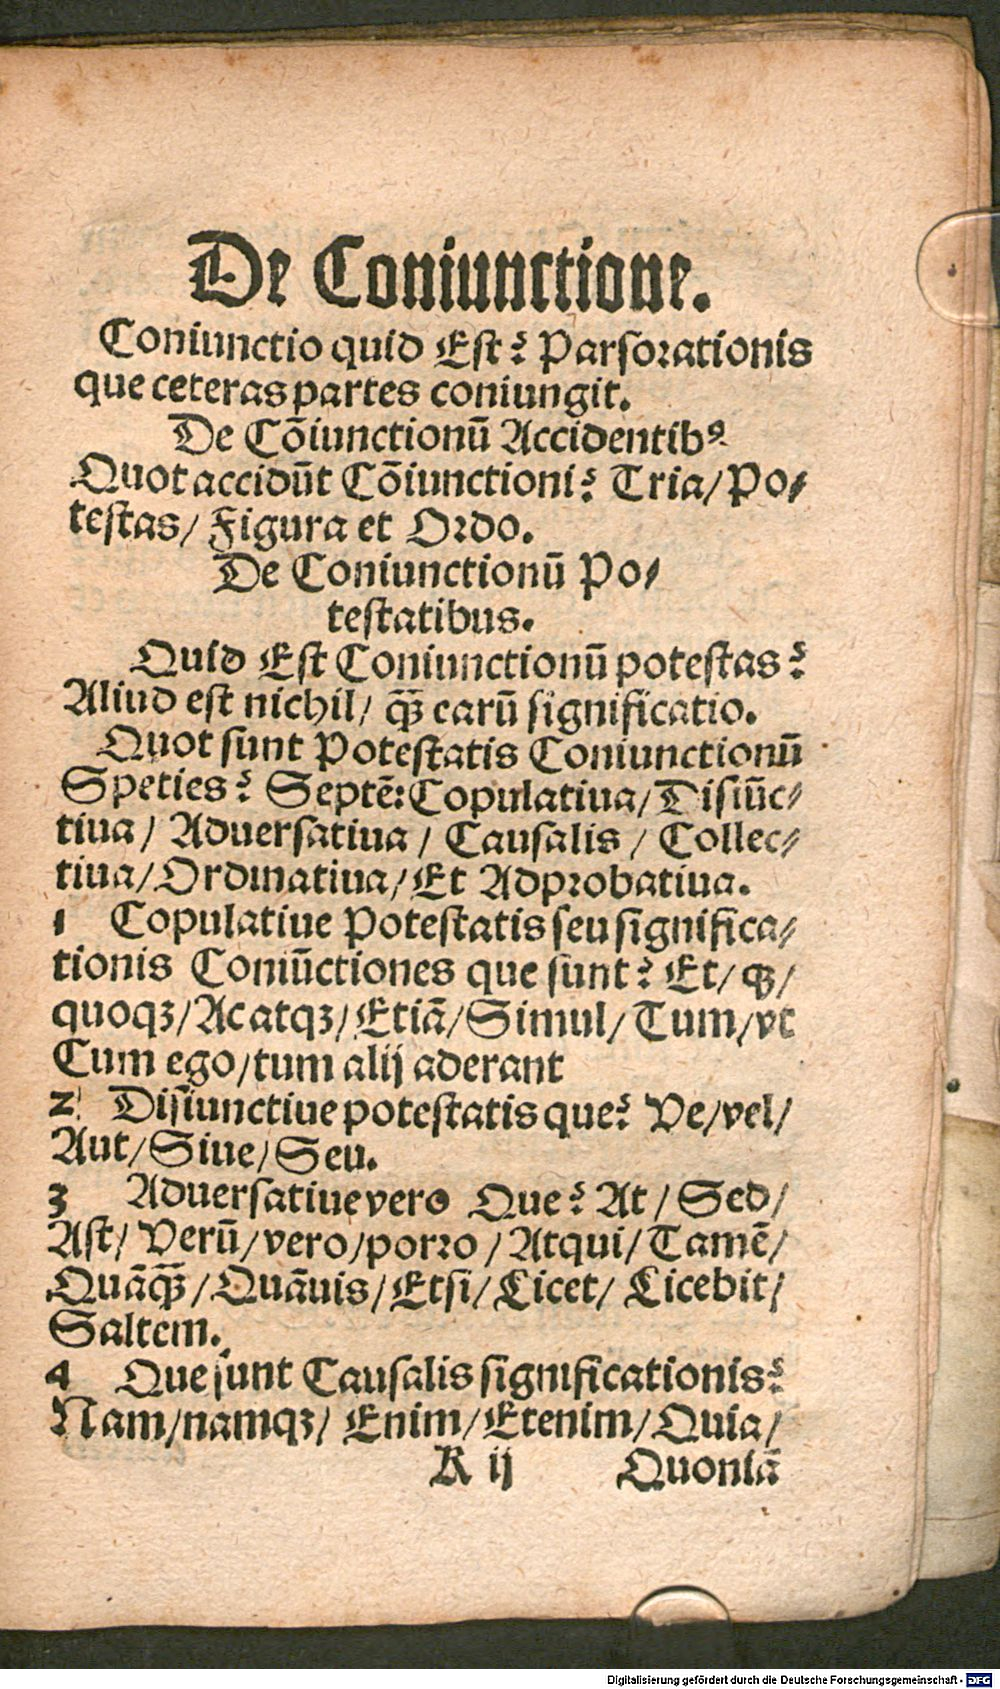 De Coniunctione.
Coniunctio quid Est? Parsorationis
que ceteras partes coniungit.
De Cōiunctionū Accidentibꝰ
Quot accidūt Cōiunctioni? Tria/ Po⸗
testas/ Figura et Ordo.
De Coniunctionū Po⸗
testatibus.
Quid Est Coniunctionū potestas?
Aliud est nichil/ qꝫ̄ earū significatio.
Quot sunt Potestatis Coniunctionū
Speties? Septē: Copulatiua/ Disiūc⸗
tiua/ Aduersatiua/ Causalis/ Collec⸗
tiua/ Ordinatiua/ Et Adprobatiua.
1 Copulatiue Potestatis seu significa⸗
tionis Coniūctiones que sunt? Et/ qꝫ/
quoqꝫ/ Ac atqꝫ/ Etiā/ Simul/ Tum/ vt
Cum ego/ tum alij aderant
2 Disiunctiue potestatis que? Ve/ vel/
Aut/ Siue/ Seu.
3 Aduersatiue vero Que? At/ Sed/
Ast/ Verū/ vero/ porro/ Atqui/ Tamē/
Quāqꝫ̄/ Quāuis/ Etsi/ Licet/ Licebit/
Saltem.
4 Que sunt Causalis significationis?
Nam/ namqꝫ/ Enim/ Etenim/ Quia/
K ij Quoniā
Digitalisierung gefördert durch die Deutsche Forschungsgemeinschaft - DFG